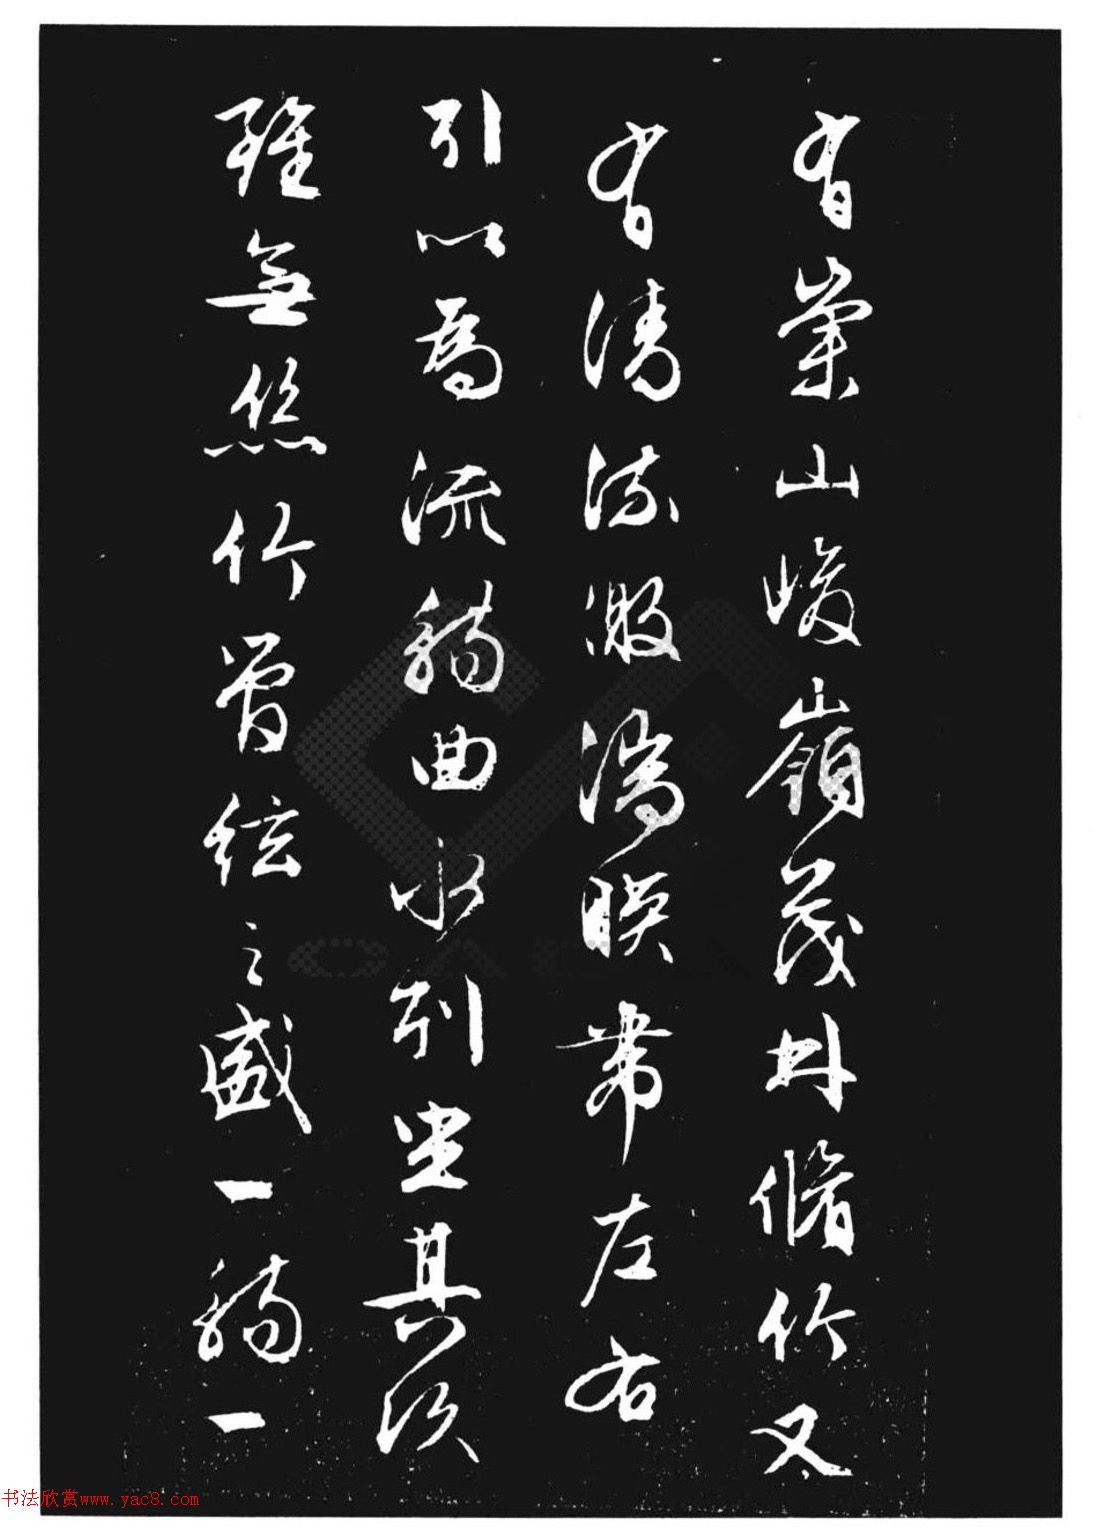 有崇山峻嶺茂林脩竹又
有清流激湍暎帶左右
引以為流觴曲水列坐其次
雖無絲竹管絃之盛一觴一
书法欣赏www.yac8.com